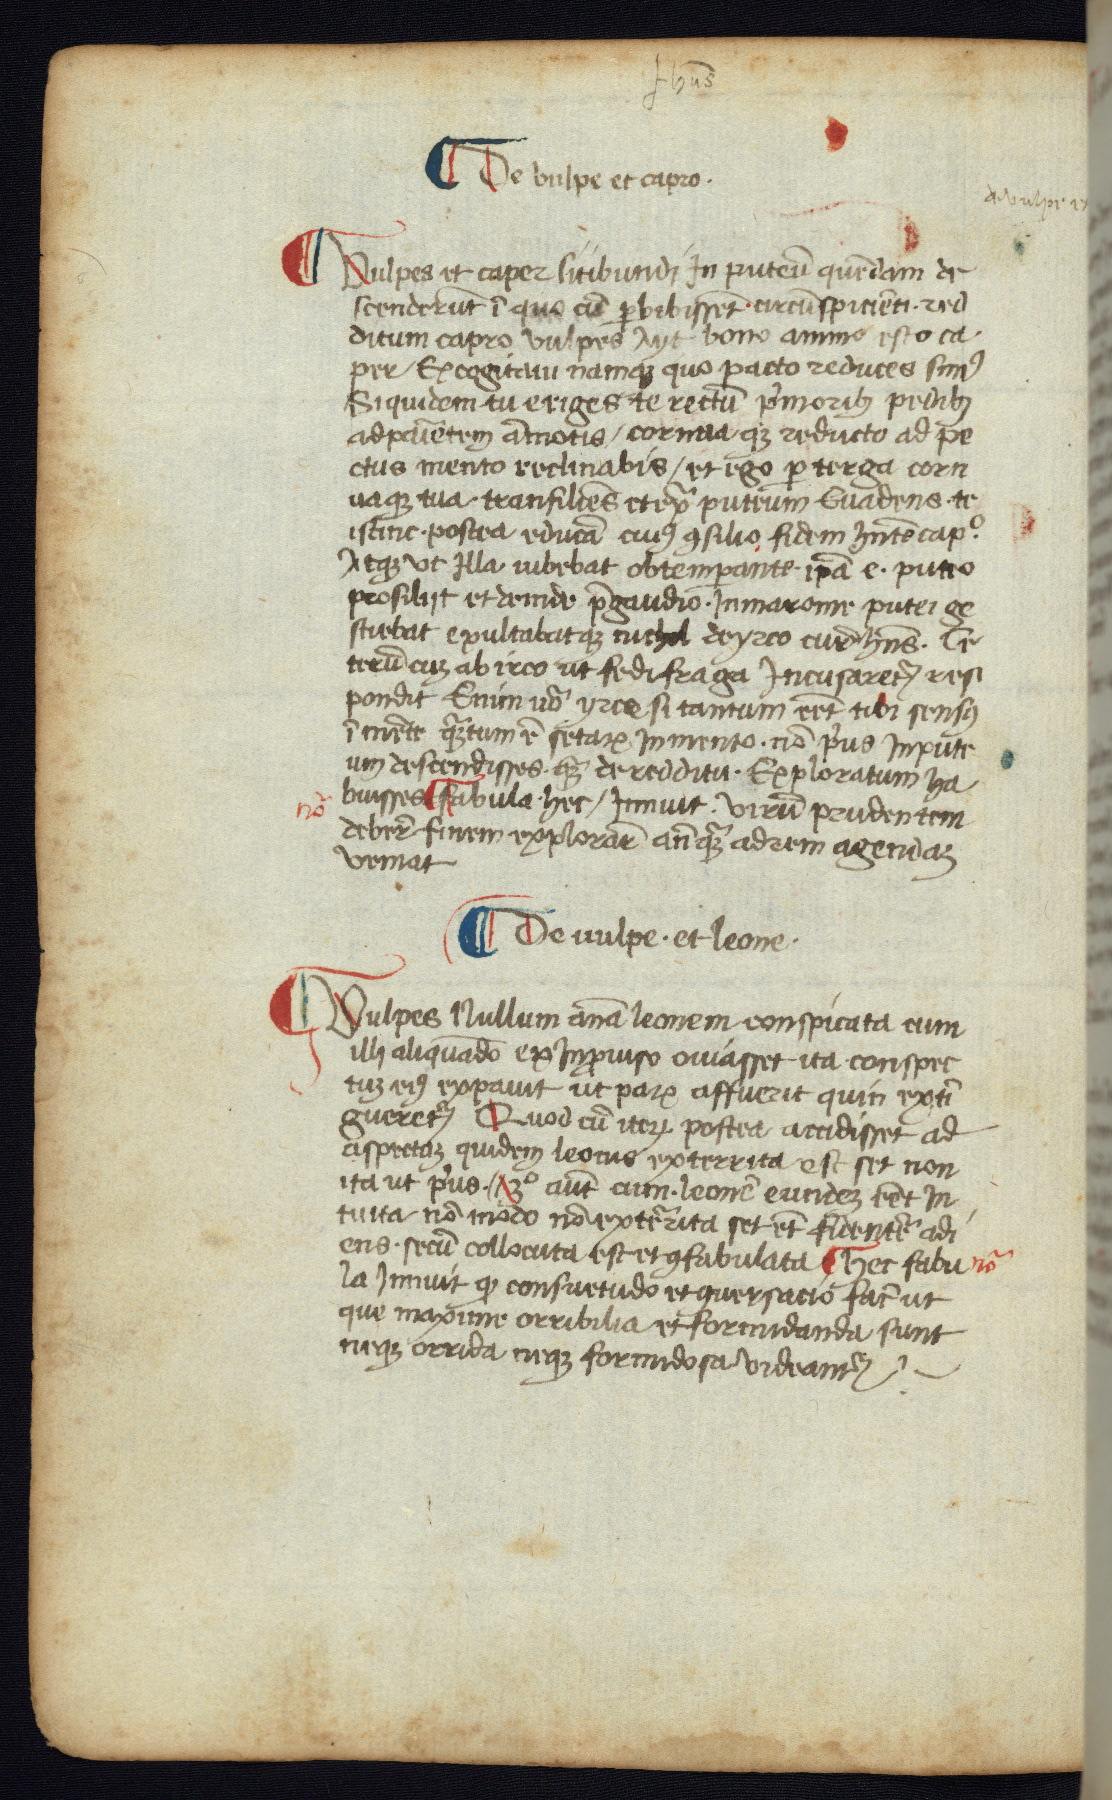 Jhūs
De vulpe et capro.
de vulpe et
Vulpes et caper sitibundi In puteū quēdam de
scenderūt ī quo cū ꝑbibissēt circūspiciēti red
ditum capro vulpes Ayt bono animo esto ca
per / Excogitaui namqꝫ quo pacto reduces simꝰ
Siquidem tu eriges te rectū pͥmoribꝫ pedibꝫ
ad parietem āmotis / cornua qꝫ reducto ad pe
ctus mento reclinabis / et ego ꝑ terga corn
uaqꝫ tua transiliēs et exͣ puteum Euadens te
istinc postea educā cuiꝰ ꝯsilio fidem hn̄te capͦ
Atqꝫ ut Illa iubebat obtemperante ip̄a e puteo
prosilijt et deinde p̄ gaudio In marome putei ge
stiebat exultabatqꝫ nichil de yrco cure hn̄s. Ce
terū cuꝫ ab irco ut fedifraga Incusaretᷣ res
pondit Enim uͦ yrce si tantum eēt tibi sensꝰ
ī mēte qͣꝫtum ē setaꝝ In mento. nō pͥus In pute
um descendisses. qͣꝫ de redditu. Exploratum ha
buisses Fabula hec / Innuit. virū prudentem
nō
deber̄ finem explorar̄ an̄qͣꝫ ad rem agendaꝫ
veniat
De vulpe. et leone.
Vulpes Nullum an̄a leonem conspicata cum
illi aliquādo ex Inꝓuiso ouiasset ita conspec
tuꝫ eiꝰ expauit ut paꝝ affuerit quin extī
gueretᷣ Quod cū iteꝝ postea accidisset ad
aspectuꝫ quidem leonis exterrita est set non
ita ut pͥus. 3ͦ aūt cum leonē eundeꝫ eēt In
tuita nō modo nō extērita set et̄ fidentē adi
ens secū collocuta est et ꝯfabulata Hec fabu
nō
la Innuit ꝙ consuetudo et ꝯuersacio fac̄ ut
que maxime orribilia et formidanda sunt
neqꝫ orrida neqꝫ formidosa videantᷣ